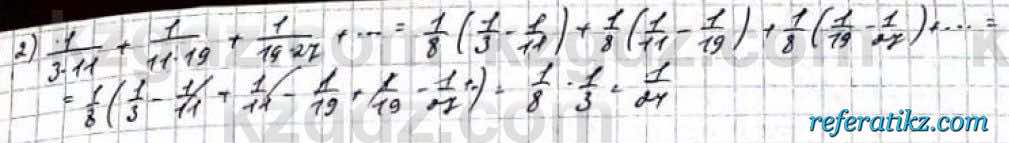 2) 1/(3·11) + 1/(11·19) + 1/(19·27) + ... = 1/8 (1/3 - 1/11) + 1/8 (1/11 - 1/19) + 1/8 (1/19 - 1/27) + ... =
= 1/8 (1/3 - 1/11 + 1/11 - 1/19 + 1/19 - 1/27 ..) = 1/8 · 1/3 = 1/24
referatikz.com